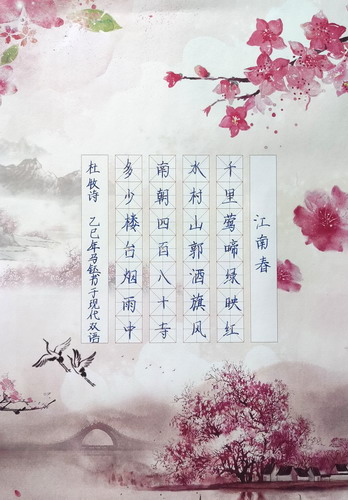 江南春
千里莺啼绿映红
水村山郭酒旗风
南朝四百八十寺
多少楼台烟雨中
杜牧诗 乙巳年马钰书于现代双语